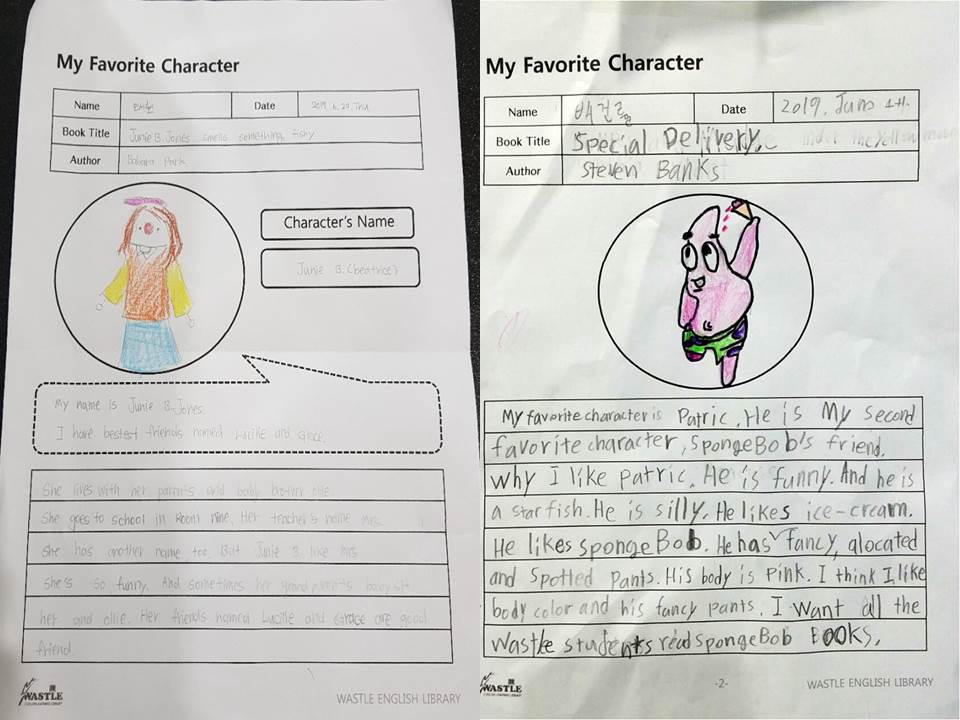 My Favorite Character
Name Date 2019. 6. 20. Thu
Book Title Junie B. Jones smells something fishy
Author Babara Park
Character's Name
Junie B. (beatrice)
My name is Junie B. Jones.
I have bestest friends named Lucille and Grace.
She lives with her parents and baby brother ollie.
She goes to school in Room nine. Her teacher's name Mrs.
She has another name too. But Junie B. like Mrs
She's so funny. And sometimes her grand parents baby sit
her and ollie. Her friends named Lucille and Grace are good
friend.
WASTLE
WASTLE ENGLISH LIBRARY
My Favorite Character
Name Date 2019. Juns
Book Title Special Delivery.
Author Steven Banks
My favorite character is Patric. He is My second
favorite character, SpongeBob's friend.
why I like patric. He is funny. And he is
a star fish. He is silly. He likes ice-cream.
He likes spongeBob. He has fancy, alocated
and spotted pants. His body is Pink. I think I like
body color and his fancy pants. I want all the
Wastle students read spongeBob BOOKS.
WASTLE
-2-
WASTLE ENGLISH LIBRARY